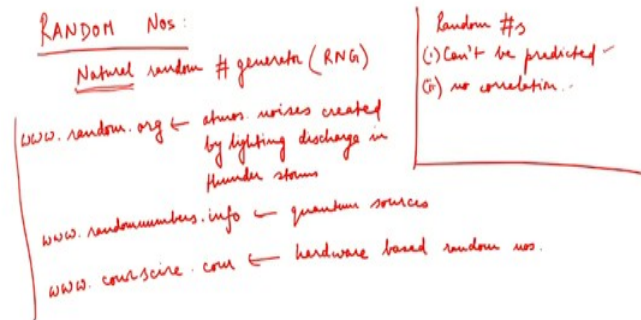 RANDOM Nos:
Natural random # generator (RNG)
www.random.org ← atmos. noises created
by lighting discharge in
thunder storms
www.randomnumbers.info ← quantum sources
www.comscire.com ← hardware based random nos.
Random #s
(i) Can't be predicted
(ii) no correlation..